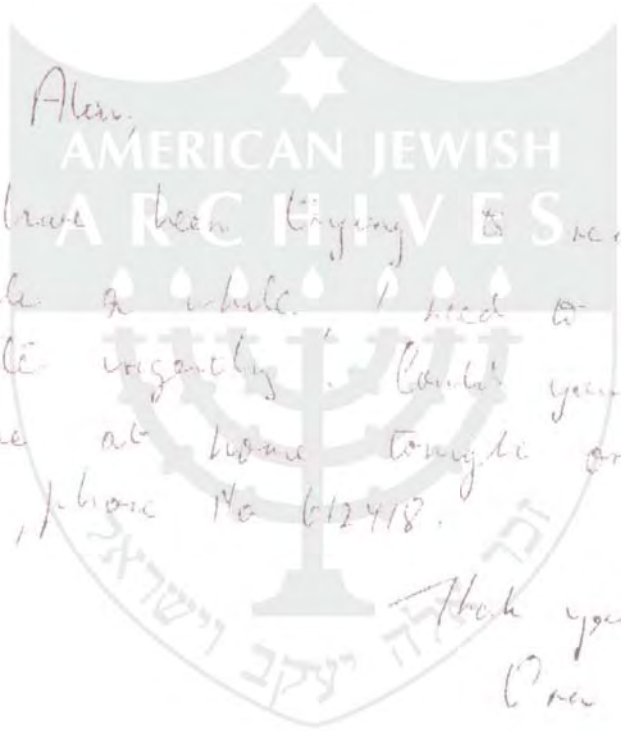 Alan,
AMERICAN JEWISH
ARCHIVES
have been trying to
while. I need to
urgently. Could you
at home tonight or
, phone No 612418.
Thank you
זכר אלה יעקב וישראל